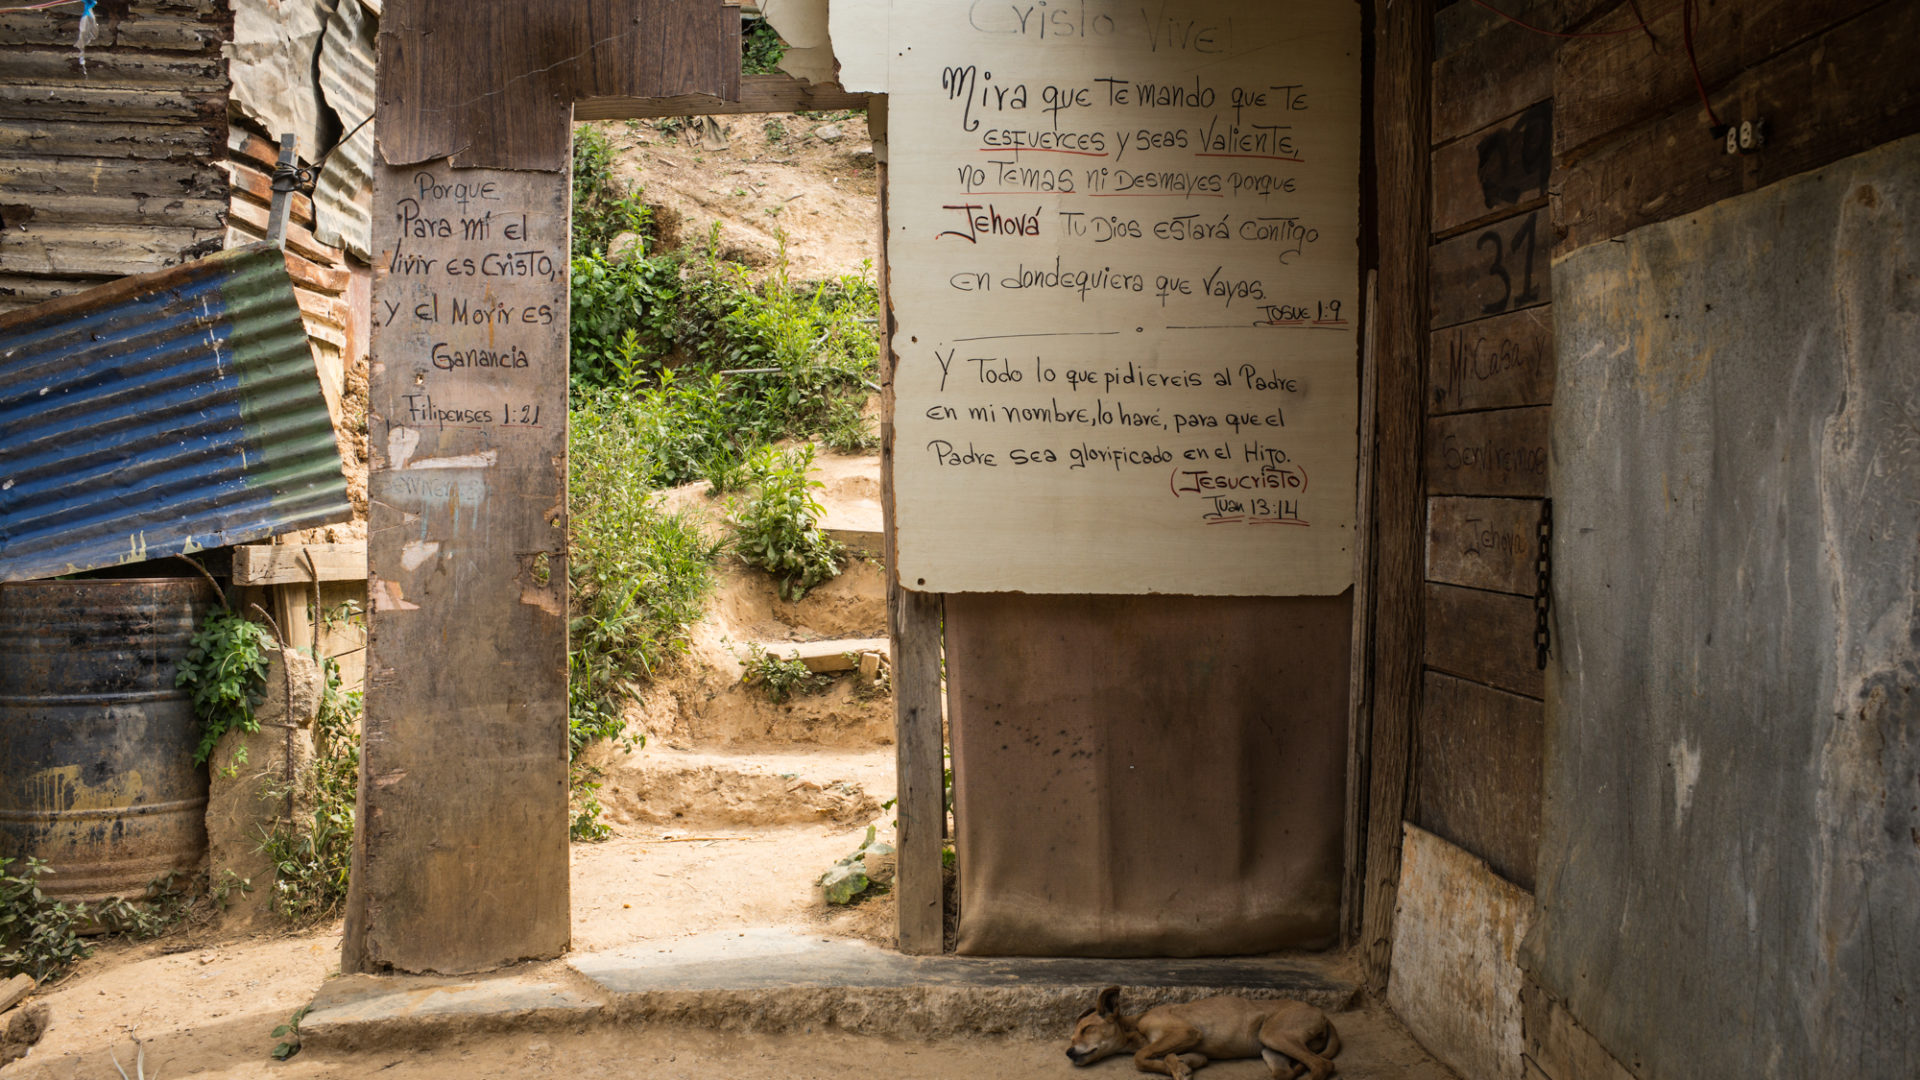 Porque
Para mí el
Vivir es Cristo,
y el Morir es
Ganancia
Filipenses 1:21
Cristo Vive!
Mira que Te mando que Te
esfuerces y seas Valiente,
no Temas ni Desmayes porque
Jehová Tu Dios estará contigo
en dondequiera que Vayas.
Josue 1:9
Y Todo lo que pidiereis al Padre
en mi nombre, lo haré, para que el
Padre sea glorificado en el HiJo.
(Jesucristo)
Juan 13:14
31
Mi Casa y
Serviremos
Jehova